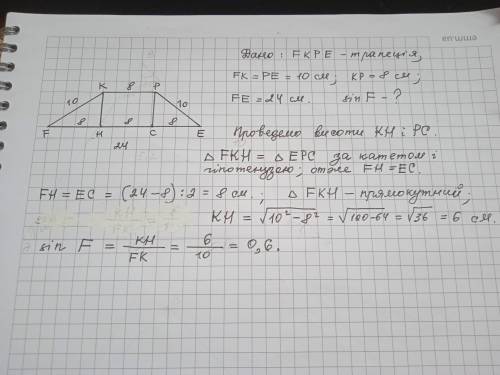 Дано: FKPE – трапеція,
FK = PE = 10 см; KP = 8 см;
FE = 24 см. sin F – ?
K 8 P
10 10
F 8 H 8 C 8 E
24
Проведемо висоти KH і PC.
△ FKH = △ EPC за катетом і
гіпотенузою, отже FH = EC.
FH = EC = (24 – 8) : 2 = 8 см.; △ FKH – прямокутний;
KH = √10² – 8² = √100 – 64 = √36 = 6 см.
sin F = KH/FK = 6/10 = 0,6.